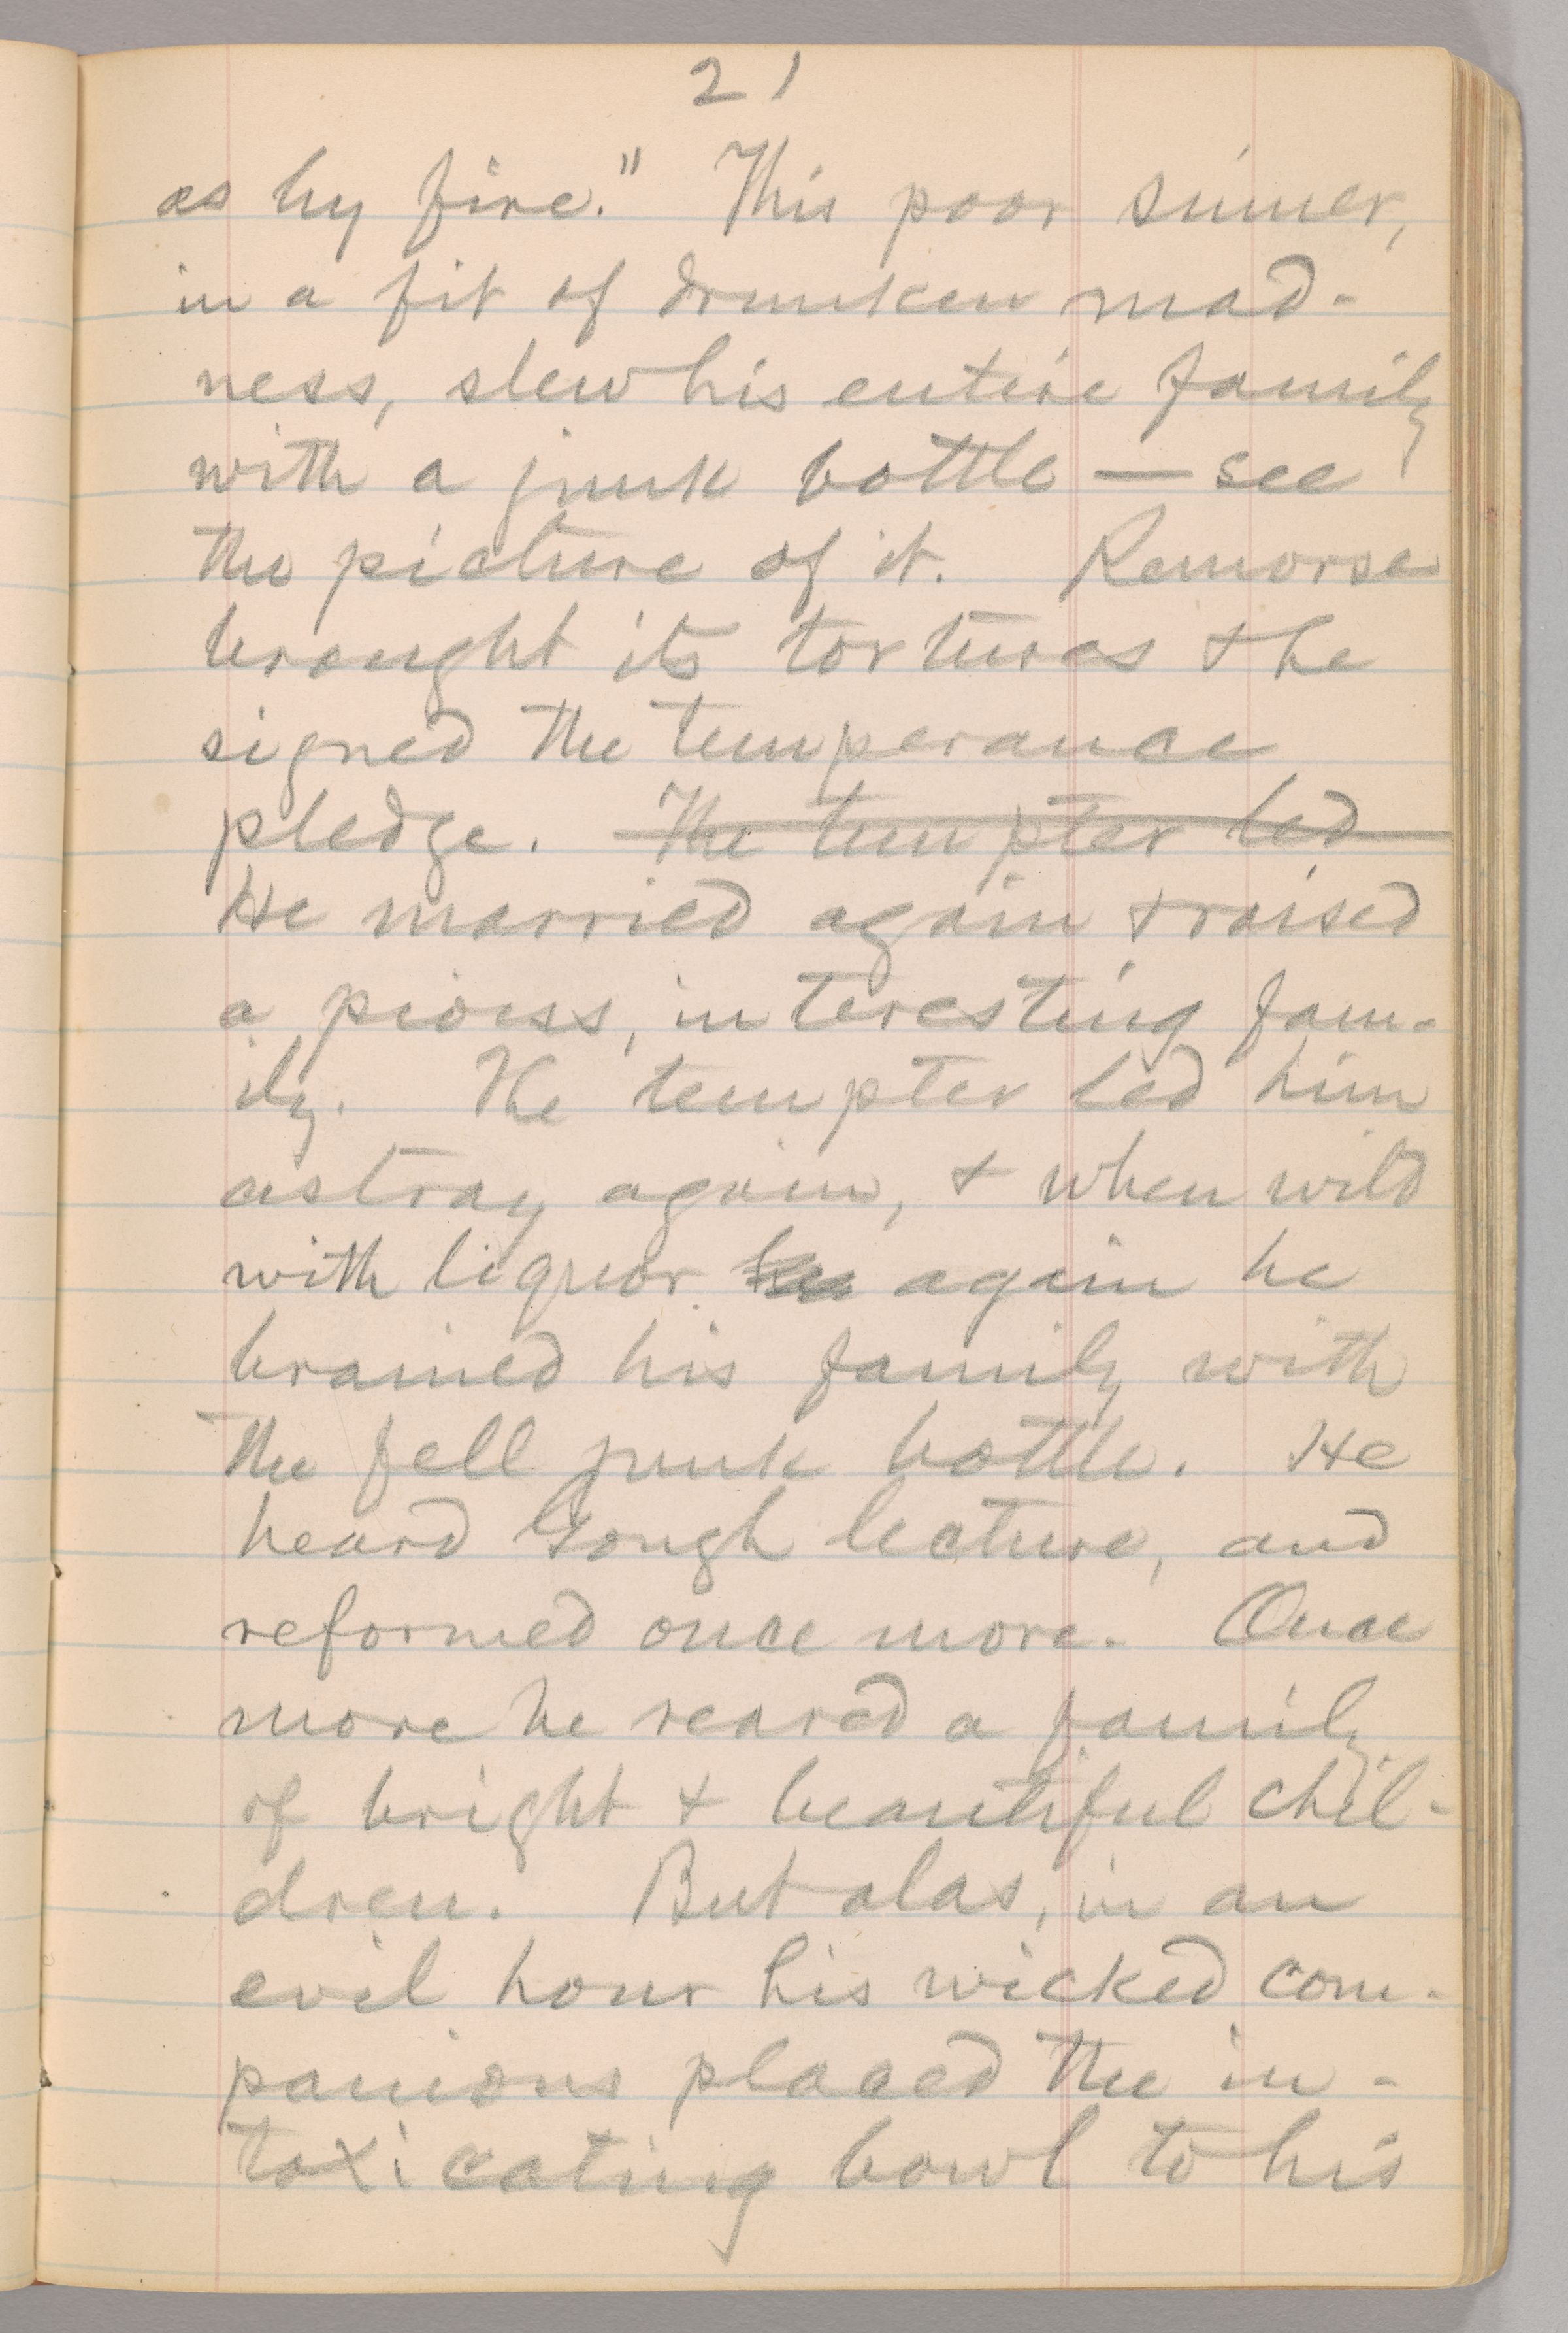 21
as by fire." This poor sinner,
in a fit of drunken mad-
ness, slew his entire family
with a junk bottle — see
the picture of it. Remorse
brought its tortures & he
signed the temperance
pledge. The tempter led
He married again & raised
a pious, interesting fam-
ily. The tempter led him
astray again, & when wild
with liquor again he
brained his family with
the fell junk bottle. He
heard Gough lecture, and
reformed once more. Once
more he reared a family
of bright & beautiful chil-
dren. But alas, in an
evil hour his wicked com-
panions placed the in-
toxicating bowl to his